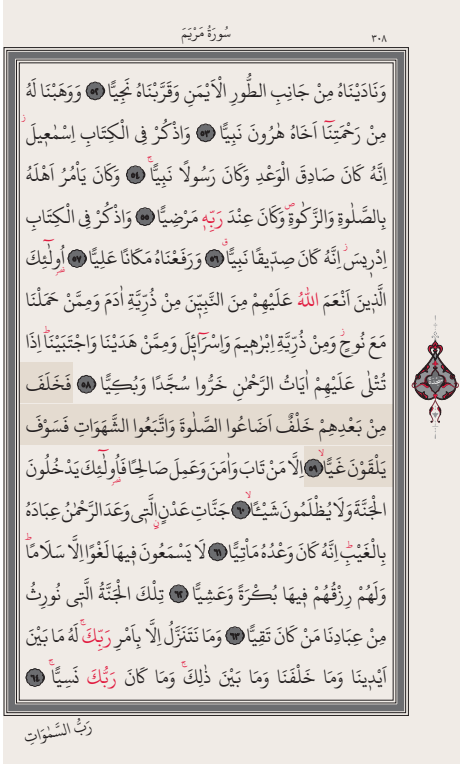 سُورَةُ مَرْيَمَ
٣٠٨
وَنَادَيْنَاهُ مِنْ جَانِبِ الطُّورِ الْاَيْمَنِ وَقَرَّبْنَاهُ نَجِيًّا ﴿٥٢﴾ وَوَهَبْنَا لَهُ
مِنْ رَحْمَتِنَٓا اَخَاهُ هٰرُونَ نَبِيًّا ﴿٥٣﴾ وَاذْكُرْ فِي الْكِتَابِ اِسْمٰعٖيلَۘ
اِنَّهُ كَانَ صَادِقَ الْوَعْدِ وَكَانَ رَسُولًا نَبِيًّاۚ ﴿٥٤﴾ وَكَانَ يَأْمُرُ اَهْلَهُ
بِالصَّلٰوةِ وَالزَّكٰوةِۖ وَكَانَ عِنْدَ رَبِّهٖ مَرْضِيًّا ﴿٥٥﴾ وَاذْكُرْ فِي الْكِتَابِ
اِدْرٖيسَۘ اِنَّهُ كَانَ صِدّٖيقًا نَبِيًّاۗ ﴿٥٦﴾ وَرَفَعْنَاهُ مَكَانًا عَلِيًّا ﴿٥٧﴾ اُولٰٓئِكَ
الَّذٖينَ اَنْعَمَ اللّٰهُ عَلَيْهِمْ مِنَ النَّبِيّٖنَ مِنْ ذُرِّيَّةِ اٰدَمَ وَمِمَّنْ حَمَلْنَا
مَعَ نُوحٍۘ وَمِنْ ذُرِّيَّةِ اِبْرٰهٖيمَ وَاِسْرَٓائٖلَ وَمِمَّنْ هَدَيْنَا وَاجْتَبَيْنَاۜ اِذَا
تُتْلٰى عَلَيْهِمْ اٰيَاتُ الرَّحْمٰنِ خَرُّوا سُجَّدًا وَبُكِيًّا ﴿٥٨﴾ فَخَلَفَ
مِنْ بَعْدِهِمْ خَلْفٌ اَضَاعُوا الصَّلٰوةَ وَاتَّبَعُوا الشَّهَوَاتِ فَسَوْفَ
يَلْقَوْنَ غَيًّاۙ ﴿٥٩﴾ اِلَّا مَنْ تَابَ وَاٰمَنَ وَعَمِلَ صَالِحًا فَاُولٰٓئِكَ يَدْخُلُونَ
الْجَنَّةَ وَلَا يُظْلَمُونَ شَيْـًٔاۙ ﴿٦٠﴾ جَنَّاتِ عَدْنٍۨ الَّتٖي وَعَدَ الرَّحْمٰنُ عِبَادَهُ
بِالْغَيْبِۜ اِنَّهُ كَانَ وَعْدُهُ مَأْتِيًّا ﴿٦١﴾ لَا يَسْمَعُونَ فٖيهَا لَغْوًا اِلَّا سَلَامًاۜ
وَلَهُمْ رِزْقُهُمْ فٖيهَا بُكْرَةً وَعَشِيًّا ﴿٦٢﴾ تِلْكَ الْجَنَّةُ الَّتٖي نُورِثُ
مِنْ عِبَادِنَا مَنْ كَانَ تَقِيًّا ﴿٦٣﴾ وَمَا نَتَنَزَّلُ اِلَّا بِاَمْرِ رَبِّكَۚ لَهُ مَا بَيْنَ
اَيْدٖينَا وَمَا خَلْفَنَا وَمَا بَيْنَ ذٰلِكَۚ وَمَا كَانَ رَبُّكَ نَسِيًّاۚ ﴿٦٤﴾
رَبُّ السَّمٰوَاتِ